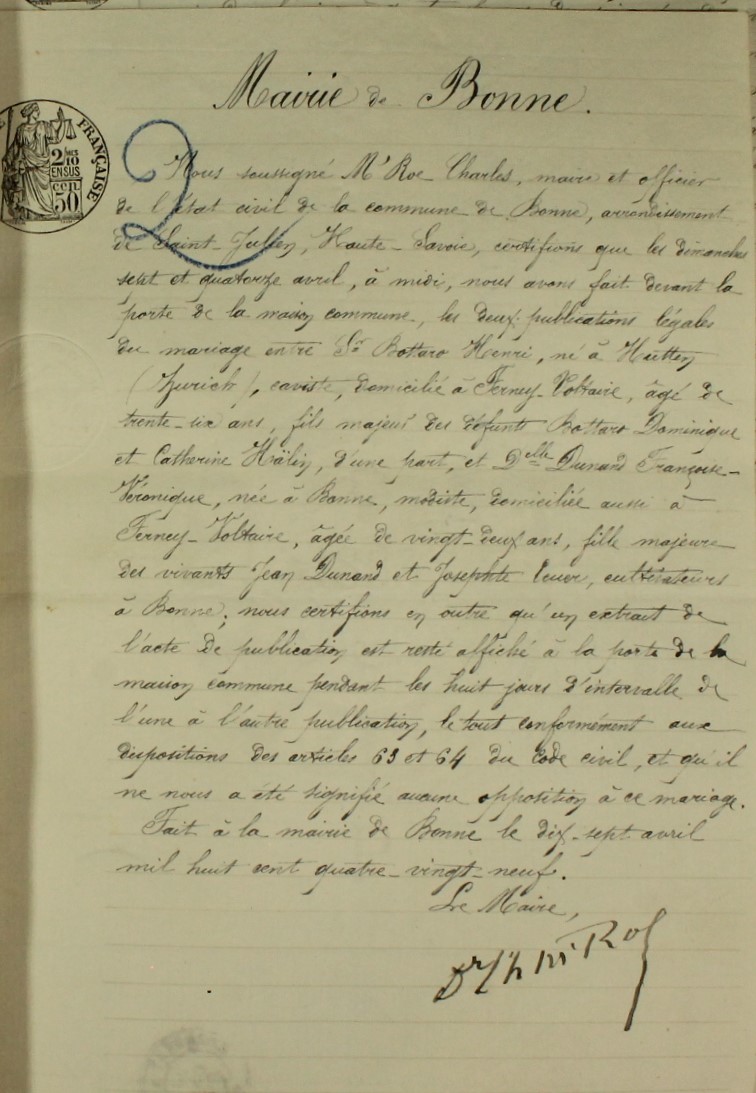 Mairie de Bonne.
FRANÇAISE
2/10
EN SUS
50
2
Nous soussigné Mr Roe Charles, maire et officier
de l'état civil de la commune de Bonne, arrondissement
de Saint-Julien, Haute-Savoie, certifions que les dimanches
sept et quatorze avril, à midi, nous avons fait devant la
porte de la maison commune, les deux publications légales
du mariage entre Sr Bottaro Henri, né à Hütten
(Zurich), caviste, domicilié à Ferney-Voltaire, âgé de
trente-six ans, fils majeur des défunts Bottaro Dominique
et Catherine Hälin, d'une part, et Delle Dunand Françoise-
Véronique, née à Bonne, modiste, domiciliée aussi à
Ferney-Voltaire, âgée de vingt-deux ans, fille majeure
des vivants Jean Dunand et Josephte, cultivateurs
à Bonne; nous certifions en outre qu'un extrait de
l'acte de publication est resté affiché à la porte de la
maison commune pendant les huit jours d'intervalle de
l'une à l'autre publication, le tout conformément aux
dispositions des articles 63 et 64 du Code civil, et qu'il
ne nous a été signifié aucune opposition à ce mariage.
Fait à la mairie de Bonne le dix-sept avril
mil huit cent quatre-vingt-neuf.
Le Maire,
Dr